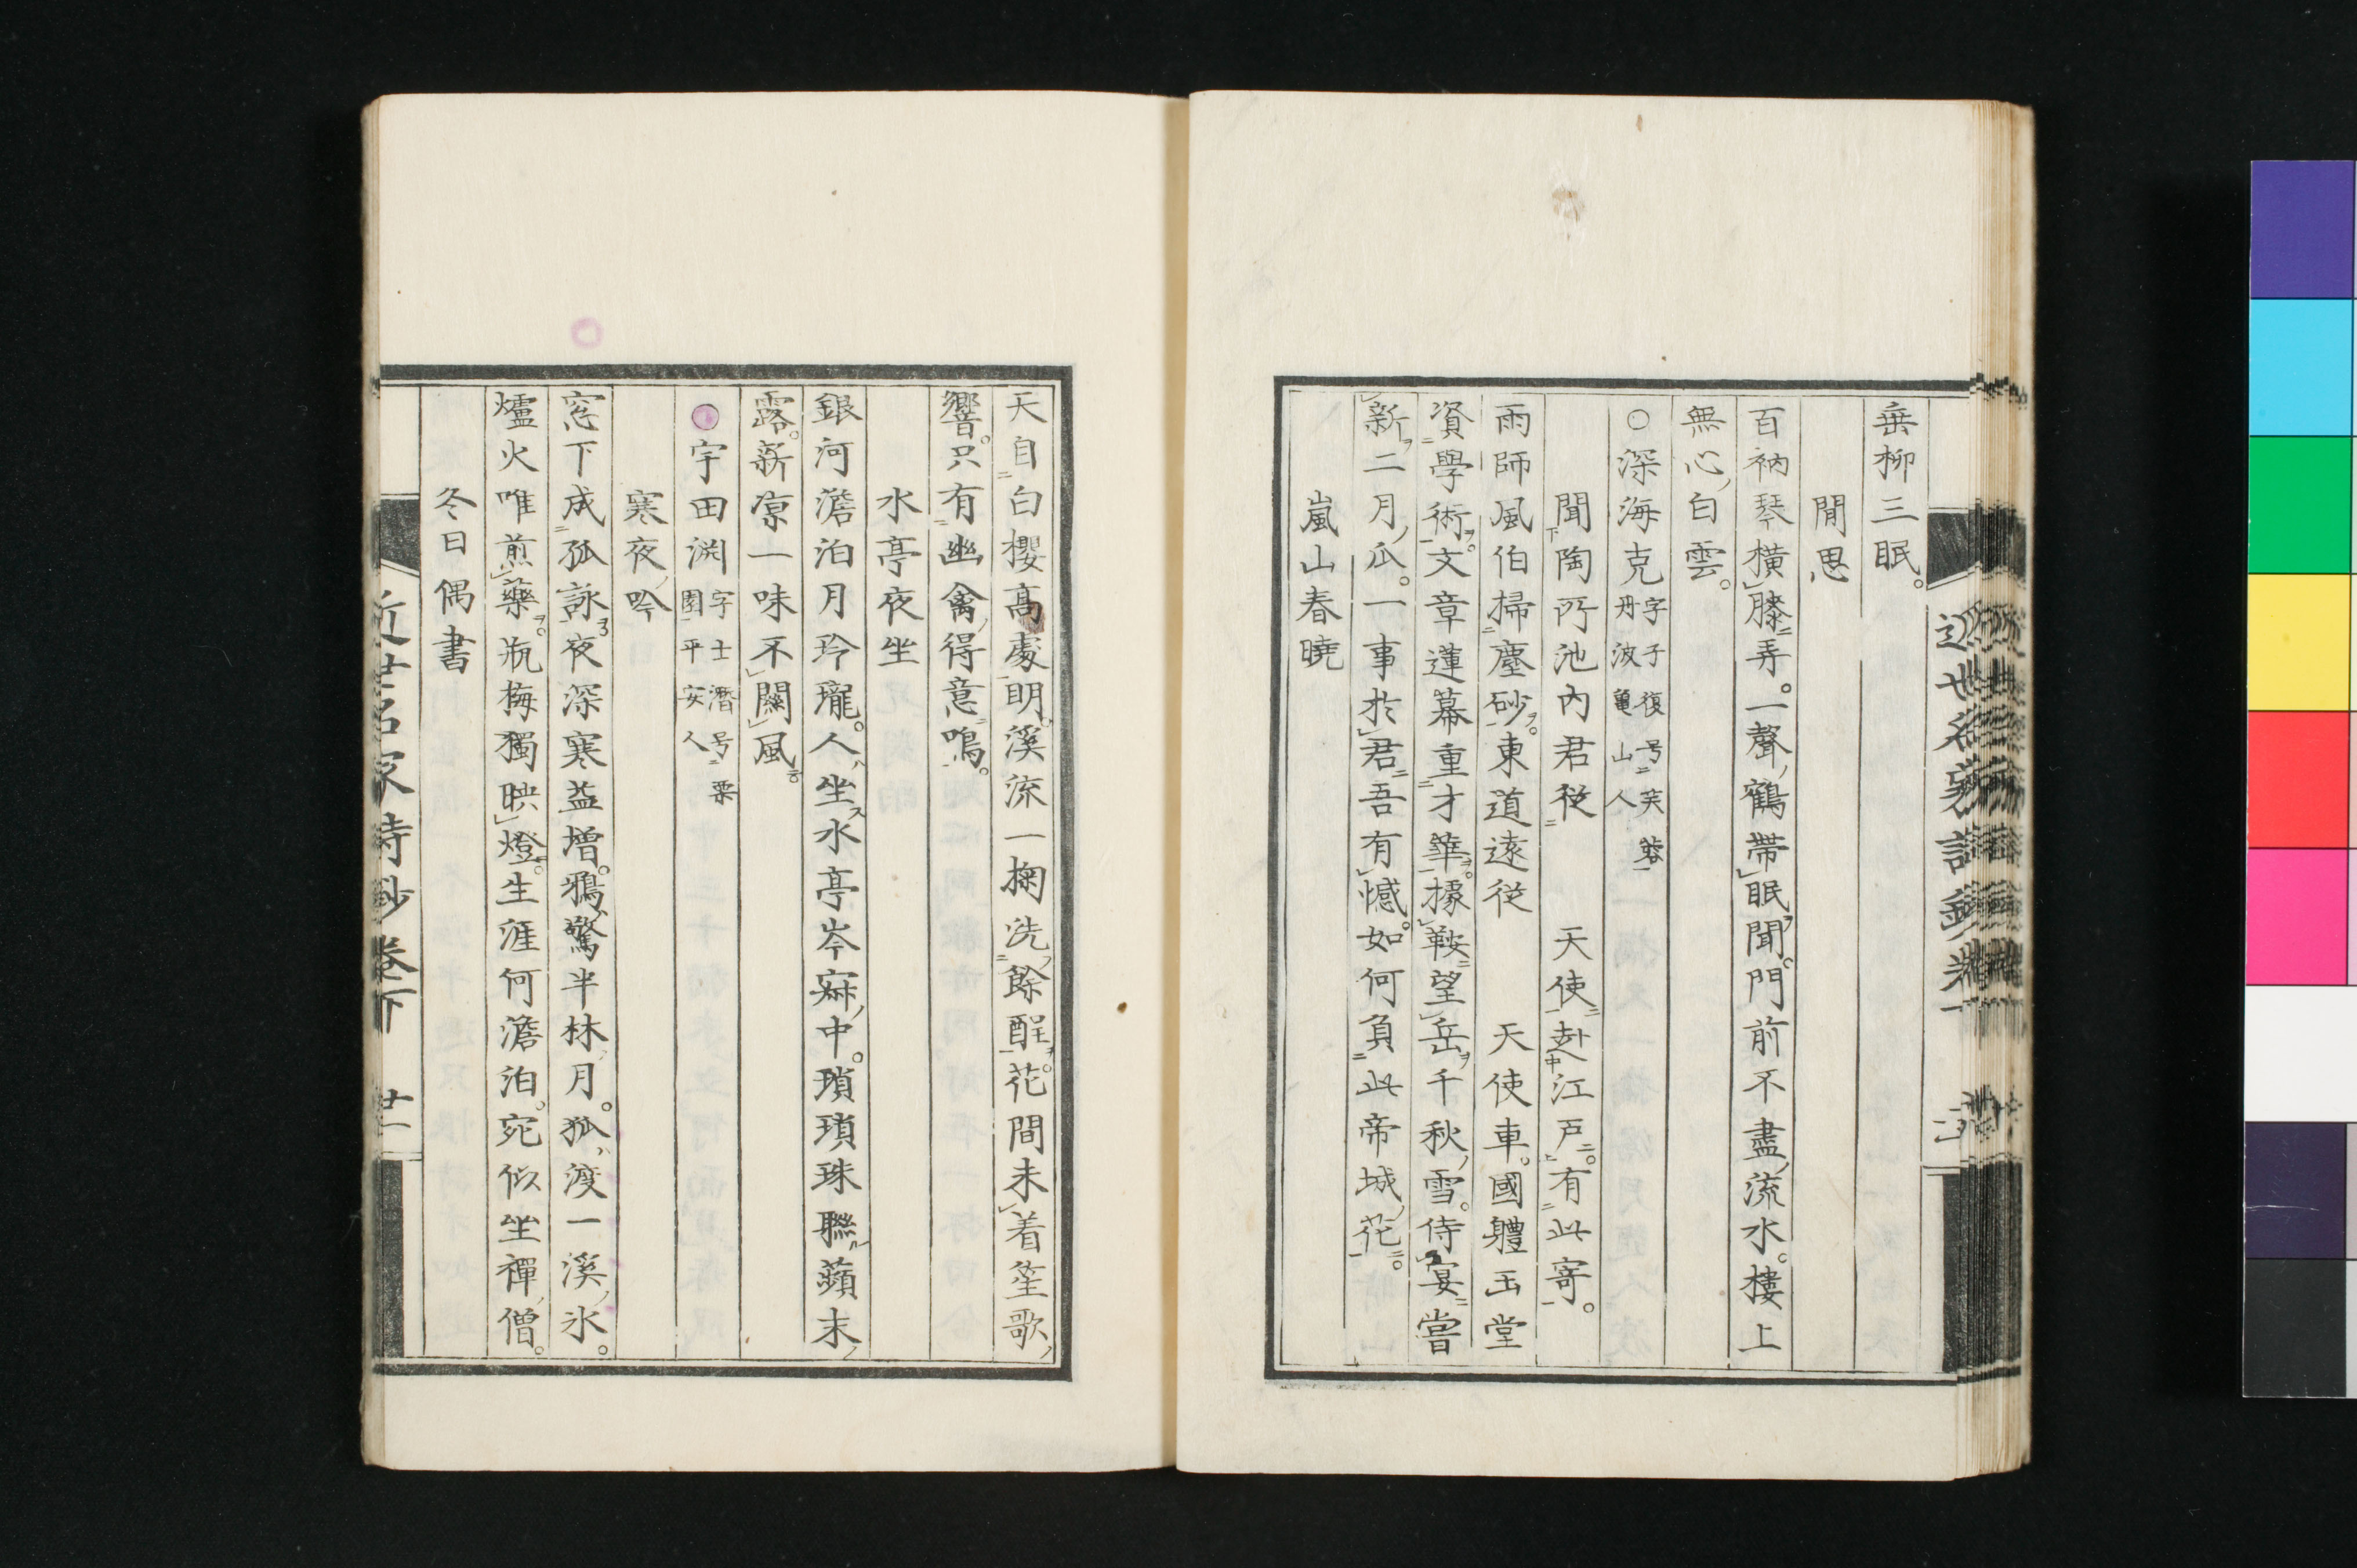 垂柳三眠。
閒思
百衲琴橫膝弄。一聲鶴帶眠聞。門前不盡流水。樓上
無心白雲。
○深海克字子復号芙蓉丹波亀山人
聞陶所池內君從 天使赴江戸。有此寄。
雨師風伯掃塵砂。東道遠從 天使車。國體玉堂
資學術。文章蓮幕重才華。據鞍望岳千秋雪。侍宴嘗
新二月瓜。一事於君吾有憾。如何負此帝城花。
嵐山春曉
天自白櫻高處明。溪流一掬洗餘酲。花間未着笙歌
響。只有幽禽得意鳴。
水亭夜坐
銀河澹泊月玲瓏。人坐水亭岑寂中。瑣瑣珠聯蘋末
露。新凉一味不關風。
宇田淵字士潛号栗園平安人
寒夜吟
窓下成孤詠夜深寒益增。鴉驚半林月。狐渡一溪氷。
爐火唯煎藥。瓶梅獨映燈。生涯何澹泊。宛似坐禪僧。
冬日偶書
近世名家詩鈔卷下 廿一